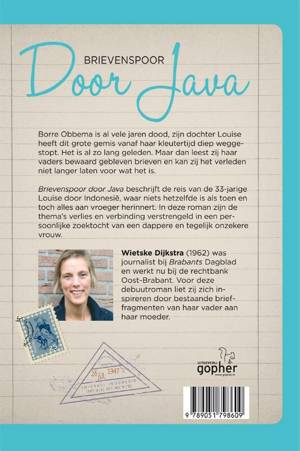 BRIEVENSPOOR
Door Java
Borre Obbema is al vele jaren dood, zijn dochter Louise
heeft dit grote gemis vanaf haar kleutertijd diep wegge-
stopt. Het is al zo lang geleden. Maar dan leest zij haar
vaders bewaard gebleven brieven en kan zij het verleden
niet langer laten voor wat het is.
Brievenspoor door Java beschrijft de reis van de 33-jarige
Louise door Indonesië, waar niets hetzelfde is als toen en
toch alles aan vroeger herinnert. In deze roman zijn de
thema's verlies en verbinding verstrengeld in een per-
soonlijke zoektocht van een dappere en tegelijk onzekere
vrouw.
Wietske Dijkstra (1962) was
journalist bij Brabants Dagblad
en werkt nu bij de rechtbank
Oost-Brabant. Voor deze
debuutroman liet zij zich in-
spireren door bestaande brief-
fragmenten van haar vader aan
haar moeder.
1947
UITGEVERIJ
gopher
9 789051 798609